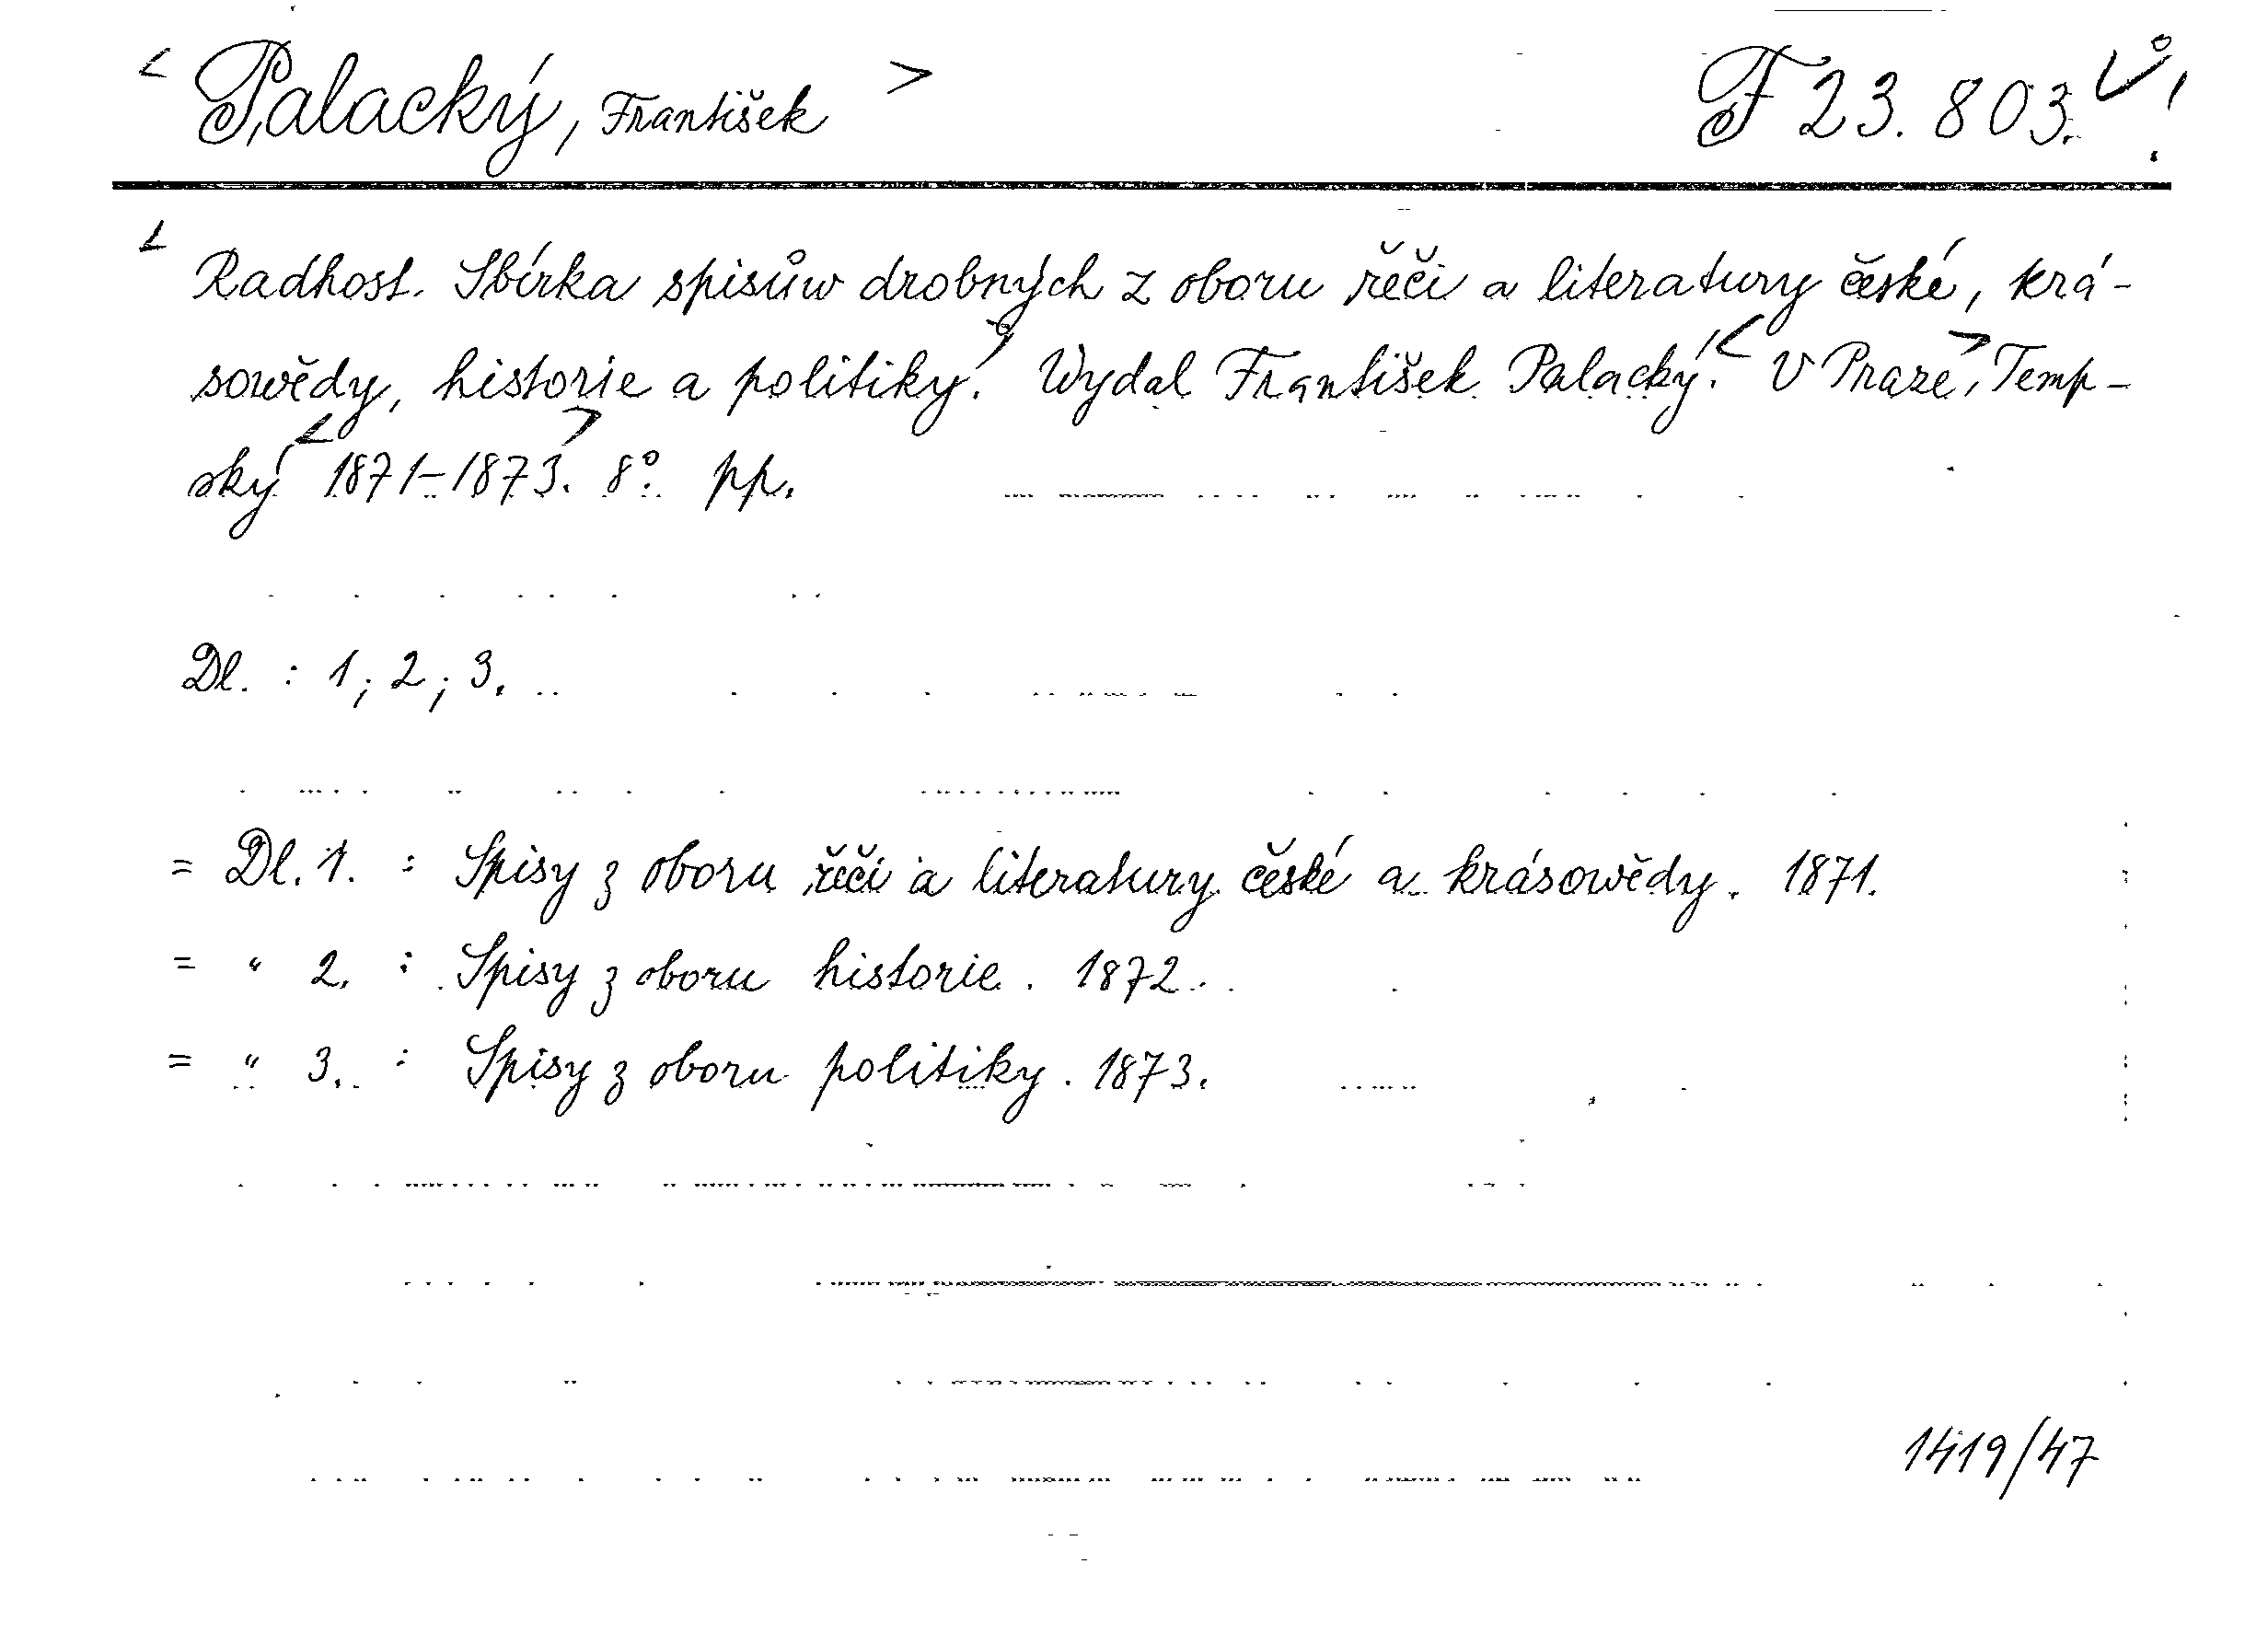 < Palacký, František > F 23.803.
< Radhost. Sbírka spisůw drobných z oboru řeči a literatury české, krá-
sowědy, historie a politiky.> Wydal František Palacký.< V Praze,> Temp-
ský < 1871–1873.> 8°. pp.
Dl. : 1; 2; 3.
= Dl. 1. : Spisy z oboru řeči a literatury české a krásowědy. 1871.
= " 2. : Spisy z oboru historie. 1872.
= " 3. : Spisy z oboru politiky. 1873.
1419/47